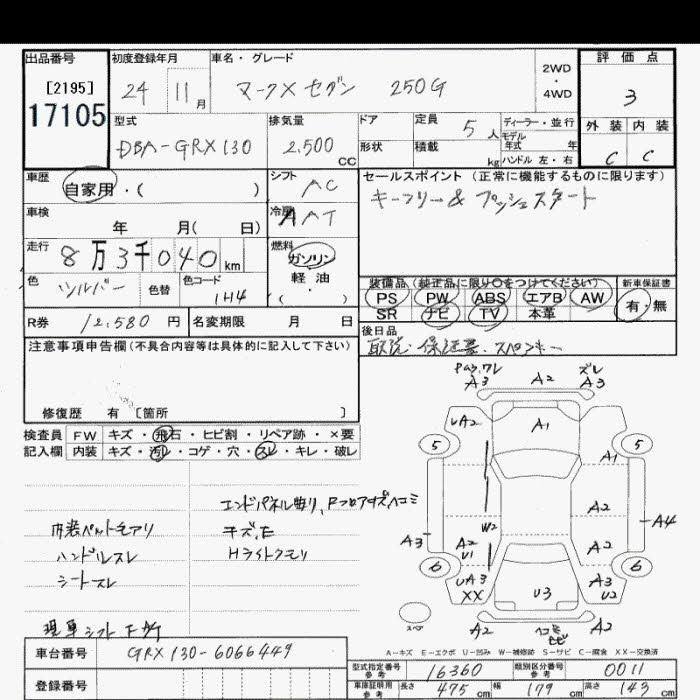 出品番号
[2195]
17105
初度登録年月
24 11 月
車名・グレード
マークX セダン 250G
2WD
・
4WD
評価点
3
外装 内装
C C
型式
DBA-GRX130
排気量
2,500
CC
ドア
形状
定員 5 人
積載 kg
ディーラー・並行
モデル
年式 年
ハンドル 左・右
車歴
自家用・( )
シフト AC
車検
年 月( 日)
冷房 AAT
走行
8万3千040 km
燃料
ガソリン
軽油
・
( )
色
シルバー
色替
色コード
1H4
セールスポイント (正常に機能するものに限ります)
キーフリー & プッシュスタート
装備品 (純正品に限り○をつけてください)
PS PW ABS エアB AW
SR ナビ TV 本革
新車保証書
有・無
R券 12,580 円
名変期限 月 日
後日品
取説・保証書・スペアキー
注意事項申告欄(不具合内容等は具体的に記入して下さい)
修復歴 有 [箇所 ]
検査員
記入欄
FW キズ・飛石・ヒビ割・リペア跡・×要
内装 キズ・汚レ・コゲ・穴・スレ・キレ・破レ
内装ペットモアリ
ハンドルスレ
シートスレ
キズ、E
Hライトクモリ
現車シフト
車台番号
GRX130-6066449
登録番号
A3
A2
ズレ
A3
UA2
A1
5
5
A1
A2
W2
A3
A2
U1
A2
A4
6
6
UA3
XX
U3
A3
U2
スペア
A2
A2
A-キズ E-エクボ U-凹み W-補修跡 S-サビ C-腐食 XX-交換済
型式指定番号
参考
16360
類別区分番号
参考
0011
車庫証明用
参考
長さ 475 cm 幅 179 cm 高さ 143 cm